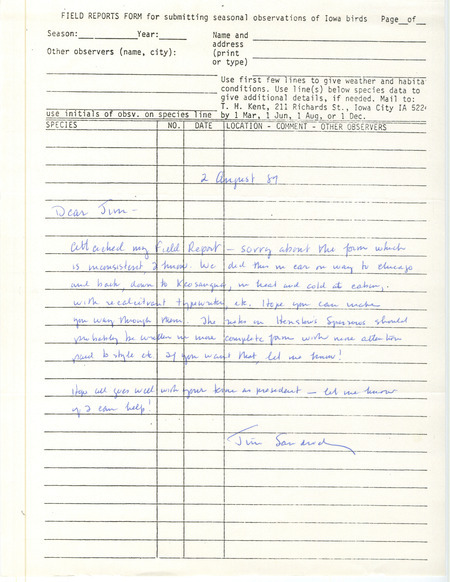 FIELD REPORTS FORM for submitting seasonal observations of Iowa birds Page__of__
Season: Year: Name and
address
Other observers (name, city): (print
or type)
Use first few lines to give weather and habita
conditions. Use line(s) below species data to
give additional details, if needed. Mail to:
T. H. Kent, 211 Richards St., Iowa City IA 522
use initials of obsv. on species line by 1 Mar, 1 Jun, 1 Aug, or 1 Dec.
SPECIES NO. DATE LOCATION - COMMENT - OTHER OBSERVERS
2 August 89
Dear Jim -
Attached my Field Report - sorry about the form which
is inconsistent I know. We did this in car on way to Chicago
and back, down to Keosauqua, in heat and cold at eating,
with recalcitrant typewriter etc. Hope you can make
your way through them. The notes on Henslows Sparrows should
probably be written in more complete form with more attention
paid to style etc. If you want that, let me know!
Hope all goes well with your term as president - let me know
if I can help!
Jim Sandrock